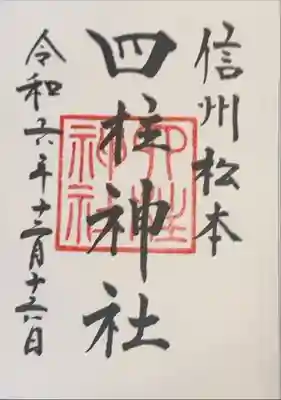 信州松本
四柱神社
四柱神社
令和六年十二月十六日